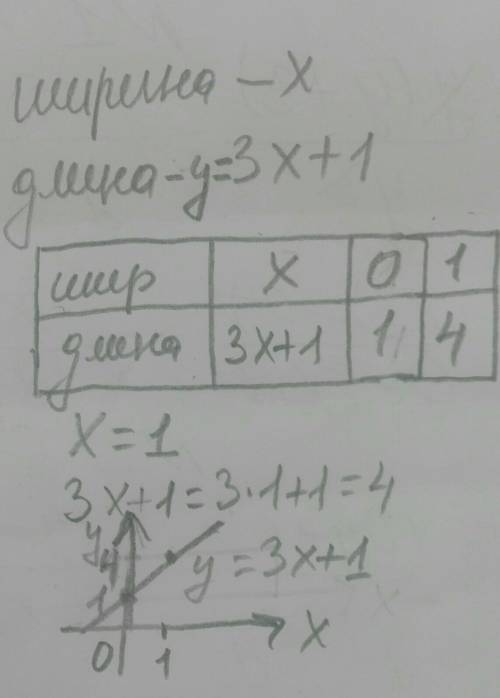 ширина - x
длина - y=3x+1
шир x 0 1
длина 3x+1 1 4
x=1
3x+1=3·1+1=4
y
4
y=3x+1
1
x
0 1